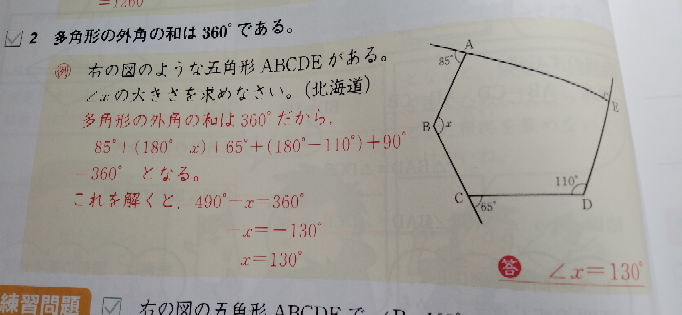 =1260°
2 多角形の外角の和は360°である。
例 右の図のような五角形ABCDEがある。
∠xの大きさを求めなさい。(北海道)
多角形の外角の和は360°だから,
85°+(180° x)+65°+(180°-110°)+90°
=360° となる。
これを解くと, 490°-x=360°
-x=-130°
x=130°
A
85°
E
B x
110°
C 65° D
答 ∠x=130°
練習問題 右の図の五角形ABCDEで,